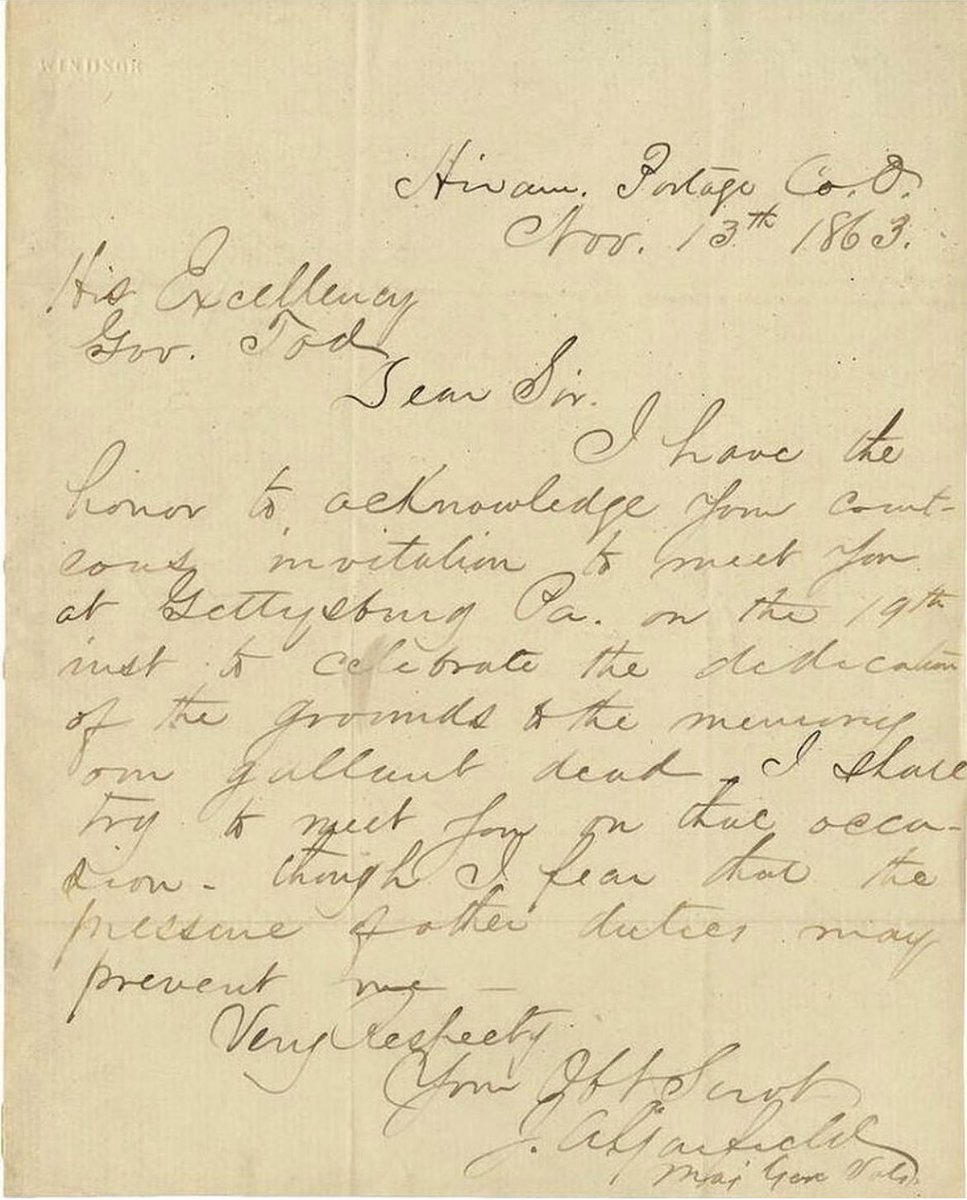 WINDSOR
Hiram. Portage Co. O.
Nov. 13th 1863.
His Excellency
Gov. Tod
Dear Sir.
I have the
honor to acknowledge your court-
eous invitation to meet you
at Gettysburg Pa. on the 19th
inst to celebrate the dedication
of the grounds to the memory
our gallant dead. I shall
try to meet you on that occa-
sion - though I fear that the
pressure of other duties may
prevent me -
Very Respecty
Your Obt Servt
J. A. Garfield
Maj Gen Vols.